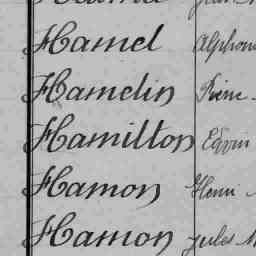 Hamel Alphon
Hamelin Pierre
Hamilton Edwin
Hamon Henri
Hamon Jules